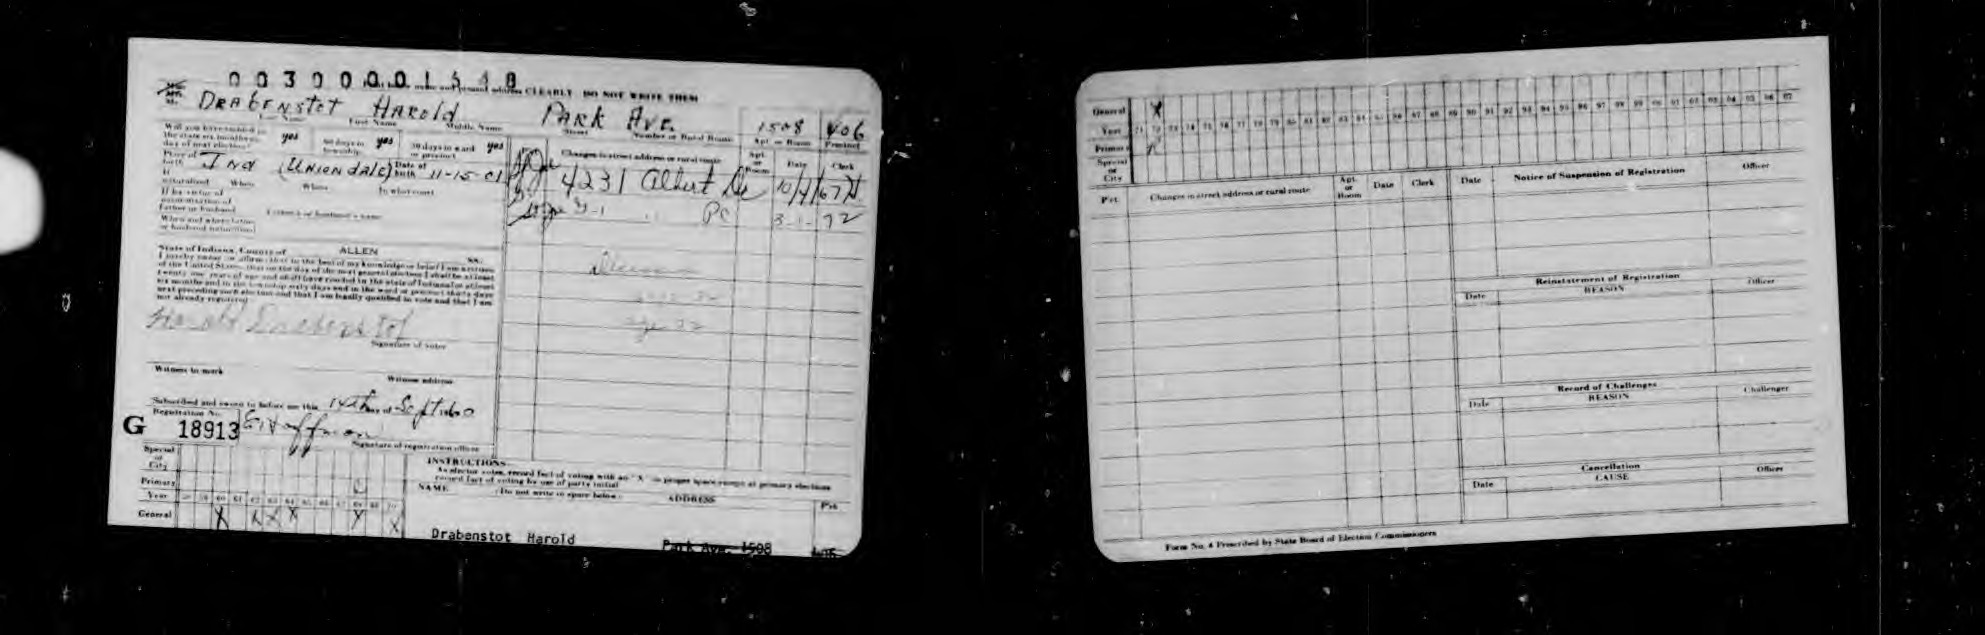 0 0 3 0 0 0 0 1 5 8
name and present address CLEARLY DO NOT WRITE THEM
DRABENSTOT HAROLD PARK AVE. 1508 406
Last Name First Name Middle Name Street Number or Rural Route Apt. or Room Precinct
Will you have resided in the state six months on day of next election? yes 60 days in township yes 30 days in ward or precinct yes
Changes in street address or rural route Apt. or Room Date Clerk
Place of birth IND (UNIONDALE) Date of birth 11-15-01
4231 Albert De 10/4/67
If naturalized When Where In what court
PC 3-1-72
If by virtue of naturalization of father or husband
Father's or husband's name
When and where father or husband naturalized
State of Indiana, County of ALLEN ss:
I hereby swear or affirm that to the best of my knowledge or belief I am a citizen
of the United States, that on the day of the next general election I shall be at least
twenty one years of age and shall have resided in the state of Indiana for at least
six months and in the township sixty days and in the ward or precinct thirty days
next preceding such election and that I am legally qualified to vote and that I am
not already registered
Harold Drabenstot
Signature of voter
Witness to mark Witness address
Subscribed and sworn to before me this 14th day of Sept 1960
Registration No.
G 18913
Signature of registration officer
Special or City
Primary
Year 58 59 60 61 62 63 64 65 66 67 68 69 70
General X X X X X X
INSTRUCTIONS
As elector votes, record fact of voting with an "X" in proper space except at primary elections
record fact of voting by use of party initial
NAME (Do not write in space below) ADDRESS Pct.
Drabenstot Harold Park Ave. 1508 406
General X
Year 71 72 73 74 75 76 77 78 79 80 81 82 83 84 85 86 87 88 89 90 91 92 93 94 95 96 97 98 99 00 01 02 03 04 05 06 07
Primary R
Special or City
Pct. Changes in street address or rural route Apt. or Room Date Clerk
Date Notice of Suspension of Registration Officer
Reinstatement of Registration
Date REASON Officer
Record of Challenges
Date REASON Challenger
Cancellation
Date CAUSE Officer
Form No. 4 Prescribed by State Board of Election Commissioners